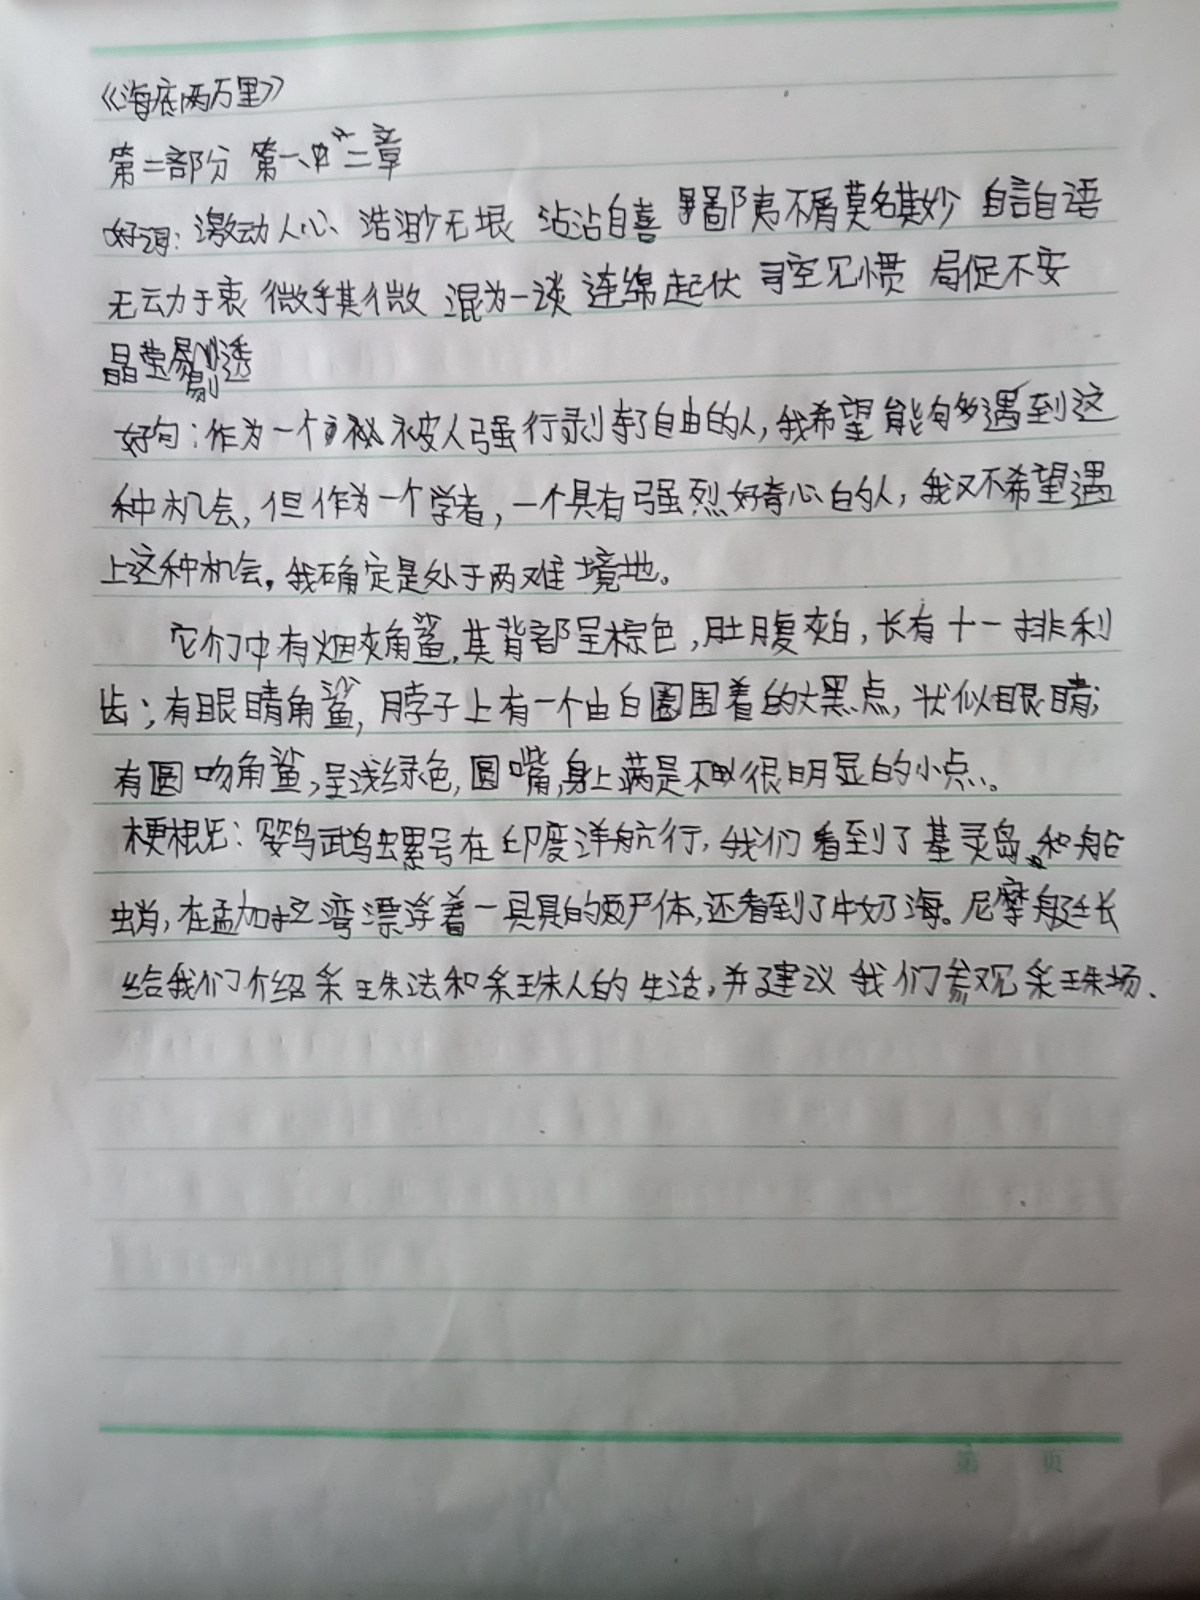 《海底两万里》
第二部分 第一、二章
好词：激动人心 浩渺无垠 沾沾自喜 鄙夷不屑 莫名其妙 自言自语
无动于衷 微乎其微 混为一谈 连绵起伏 司空见惯 局促不安
晶莹剔透
好句：作为一个被人强行剥夺了自由的人，我希望能够遇到这
种机会，但作为一个学者，一个具有强烈好奇心的人，我又不希望遇
上这种机会，我确定是处于两难境地。
它们中有烟灰角鲨，其背部呈棕色，肚腹灰白，长有十一排利
齿；有眼睛角鲨，脖子上有一个由白圈围着的大黑点，状似眼睛；
有圆吻角鲨，呈浅绿色，圆嘴，身上满是不很明显的小点。
梗概：鹦鹉螺号在印度洋航行，我们看到了基灵岛和船
蛸，在孟加拉弯漂浮着一具具的死尸体，还看到了牛奶海。尼摩艇长
给我们介绍采珠法和采珠人的生活，并建议我们参观采珠场、
第 页